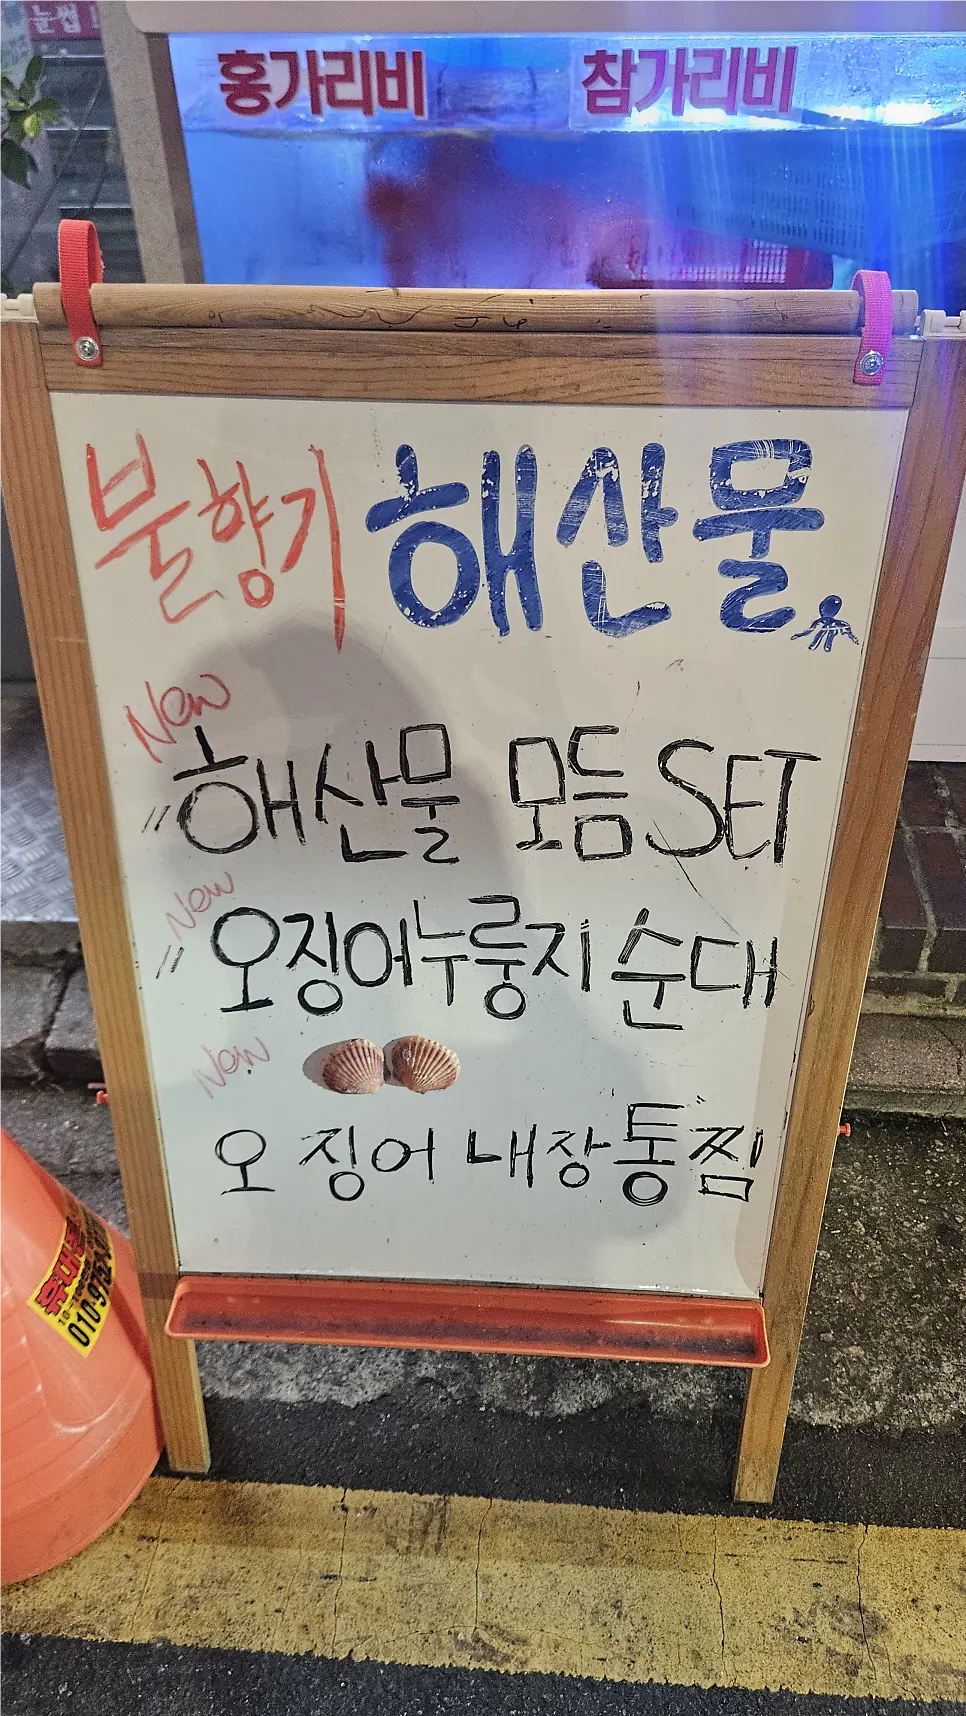 눈썹
홍가리비 참가리비
불향기 해산물
New
해산물 모듬 SET
New
오징어누룽지 순대
New
오징어 내장통찜